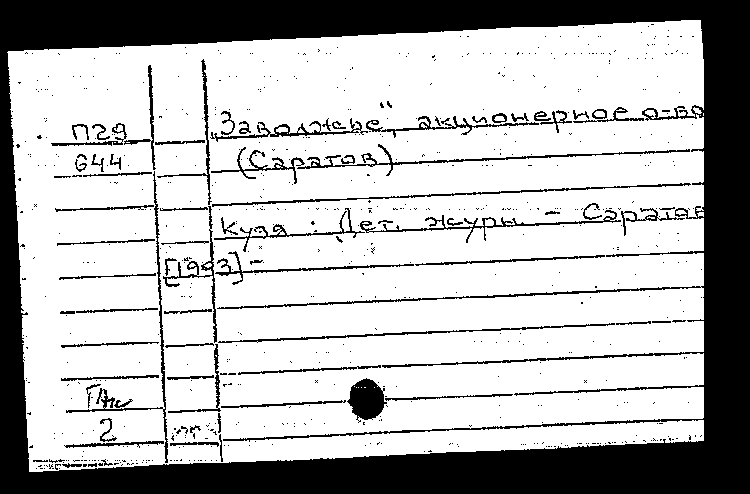 П29 „Заволжье“, акционерное о-во
G44 (Саратов)
Кузя : Дет. журн. – Саратов
[1993] –
2